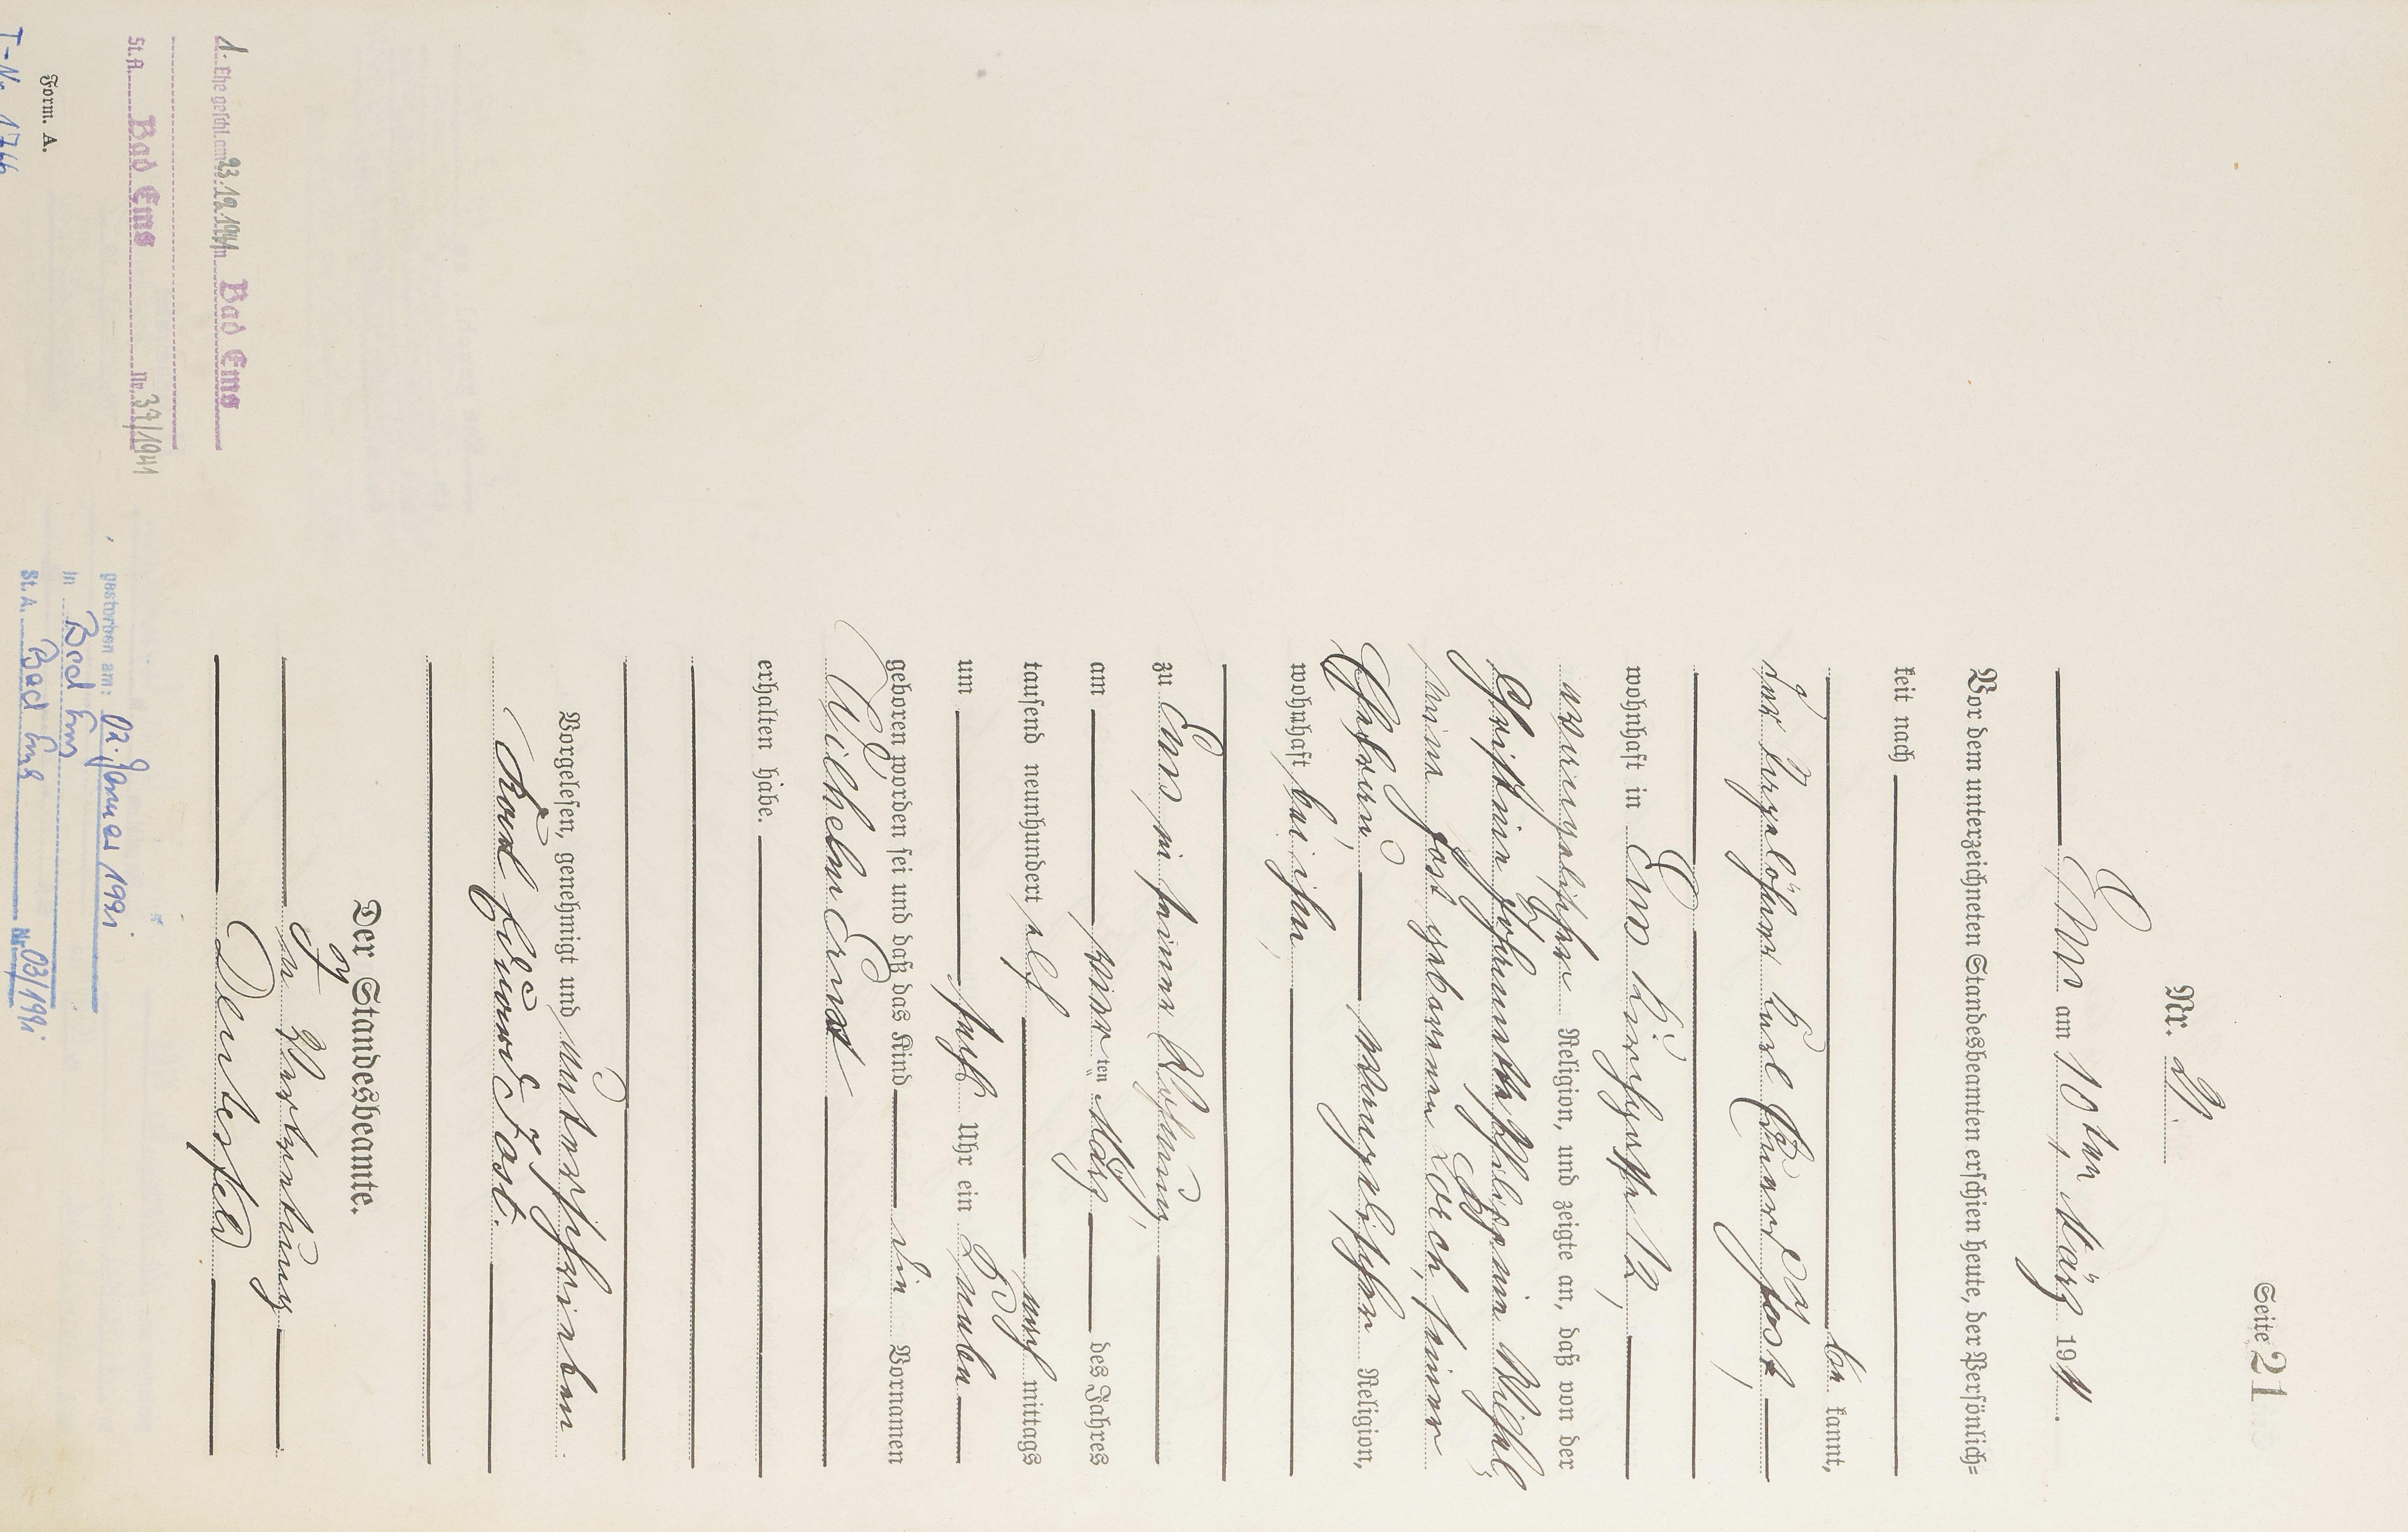 Seite 21
Nr. 21.
Ems am 10ten März 1911.
Vor dem unterzeichneten Standesbeamten erschien heute, der Persönlich=
keit nach
be kannt,
der Tagelöhner Karl Eduard Jost,
wohnhaft in Ems Kirchgasse 12,
evangelischer Religion, und zeigte an, daß von der
Christine Johannette Philippine Wilhel=
mine Jost geborenen Lorch, seiner
Ehefrau, evangelischer Religion,
wohnhaft bei ihm,
zu Ems in seiner Wohnung,
am ten März des Jahres
tausend neunhundert elf nach mittags
um sechs Uhr ein Knabe
geboren worden sei und daß das Kind die Vornamen
Wilhelm Ernst
erhalten habe.
Vorgelesen, genehmigt und unterschrieben.
Karl Eduard Jost.
Der Standesbeamte.
In Vertretung
1. Ehe geschl. am 23.12.1941 in Bad Ems
St.A. Bad Ems Nr. 37/1941
Form. A.
gestorben am: 02. Januar 1991
in Bad Ems
St. A. Bad Ems Nr. 03/1991